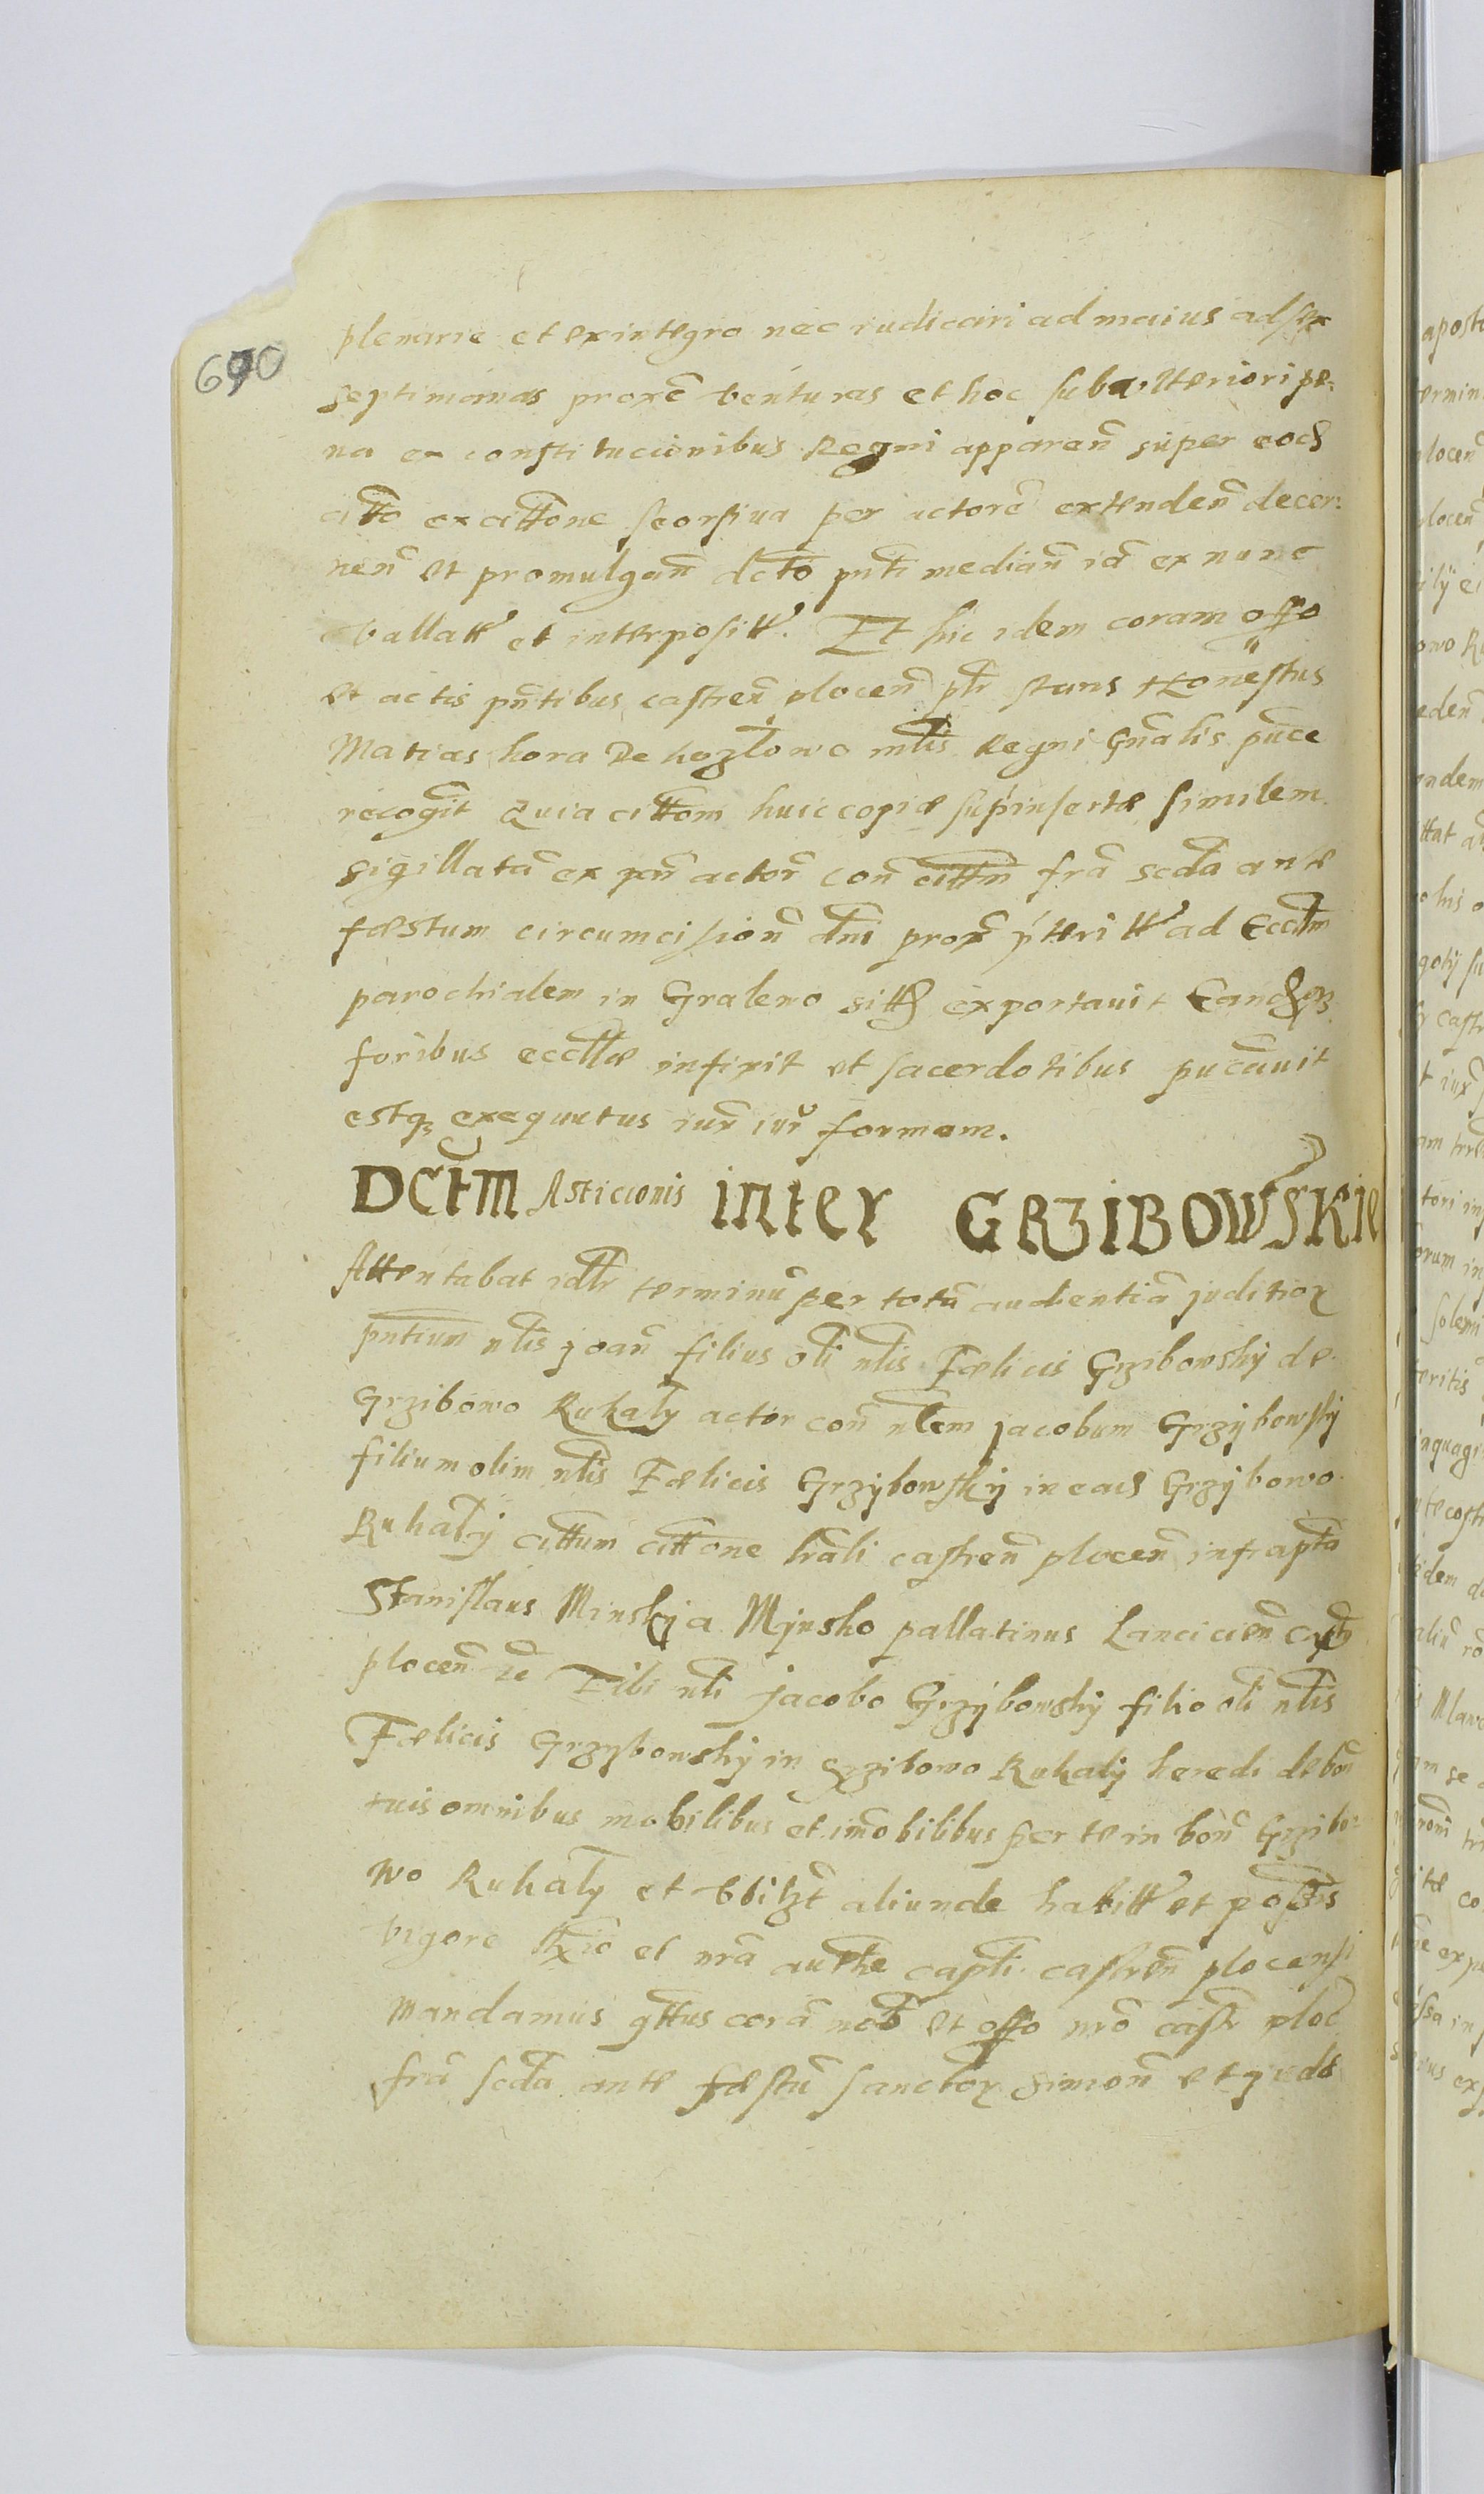 690
plenarie et ex integro nec iudicari ad maius ad sex
septimanas proxe venturas et hoc sub ulteriori pe:
na ex constitucionibus Regni apparen super eod
citto ex cittone seorsiva per actore extenden decer:
nen et promulgan dcto pnti median ia ex nunc
vallatt et interpositt. Et hic idem coram offo
et actis pntibus castren plocen plr stans Honestus
Matias hora de kozlowo mlis Regni Gnalis pnce
recogit Quia cittom huic copiæ supinsertæ similem
sigillata ex pn actor con cittm fra scda ante
fæstum circumcision dni prox ptteritt ad Ecclm
parochialem in Gralewo sitt exportavit Eandq
foribus eccllæ infixit et sacerdotibus pucavit
estq exequutus iux iur formam.
DCtM Asticionis inter GRZIBOWSKIE
Attentabat idlr terminu per tota audientia juditior
pntium nlis joan filius oli nlis Fælicis Grzibowsky de
Grzibowo Rukaly actor con nlem jacobum Grzybowsky
filium olim nlis Fælicis Grzybowsky in ead Grzybowo
Rukaly cittum cittone lrali castren plocen infrapta
Stanislaus Minsky a Mynsko pallatinus Lancicien capt
plocen ze Tibi nli jacobo Grzybowsky filio oli nlis
Fælicis Grzybowsky in grzibowo Rukaly heredi de bon
tuis omnibus mobilibus et imobilibus per te in bon Grzibo:
wo Rukaly et vbilzt aliunde habitt et possis
vigore et nra authe capli castren plocensi
Mandamus qttus cora nob et offo nro castr ploc
fra scda ante fæstu sanctor Simon et Jude